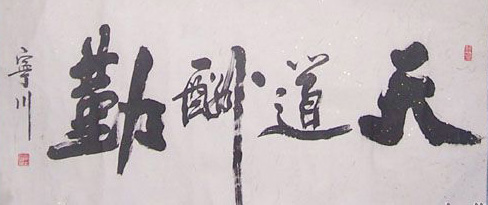 天道酬勤
寧川